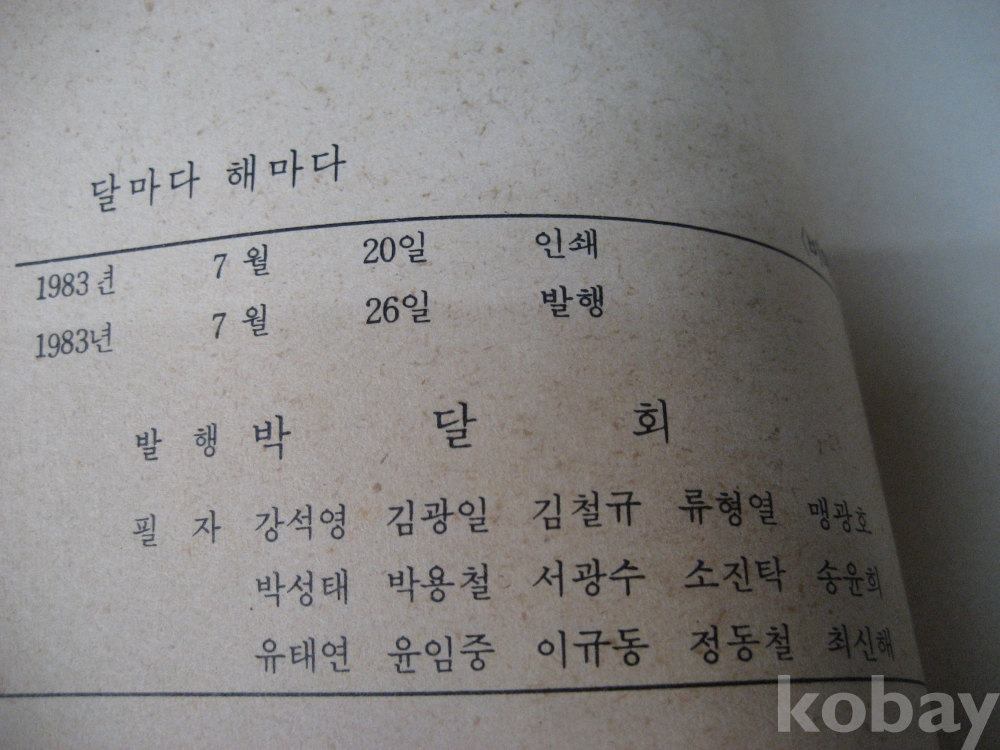 달마다 해마다
1983년 7월 20일 인쇄
1983년 7월 26일 발행
발 행 박 달 회
필 자 강석영 김광일 김철규 류형열 맹광호
박성태 박용철 서광수 소진탁 송윤희
유태연 윤임중 이규동 정동철 최신해
kobay